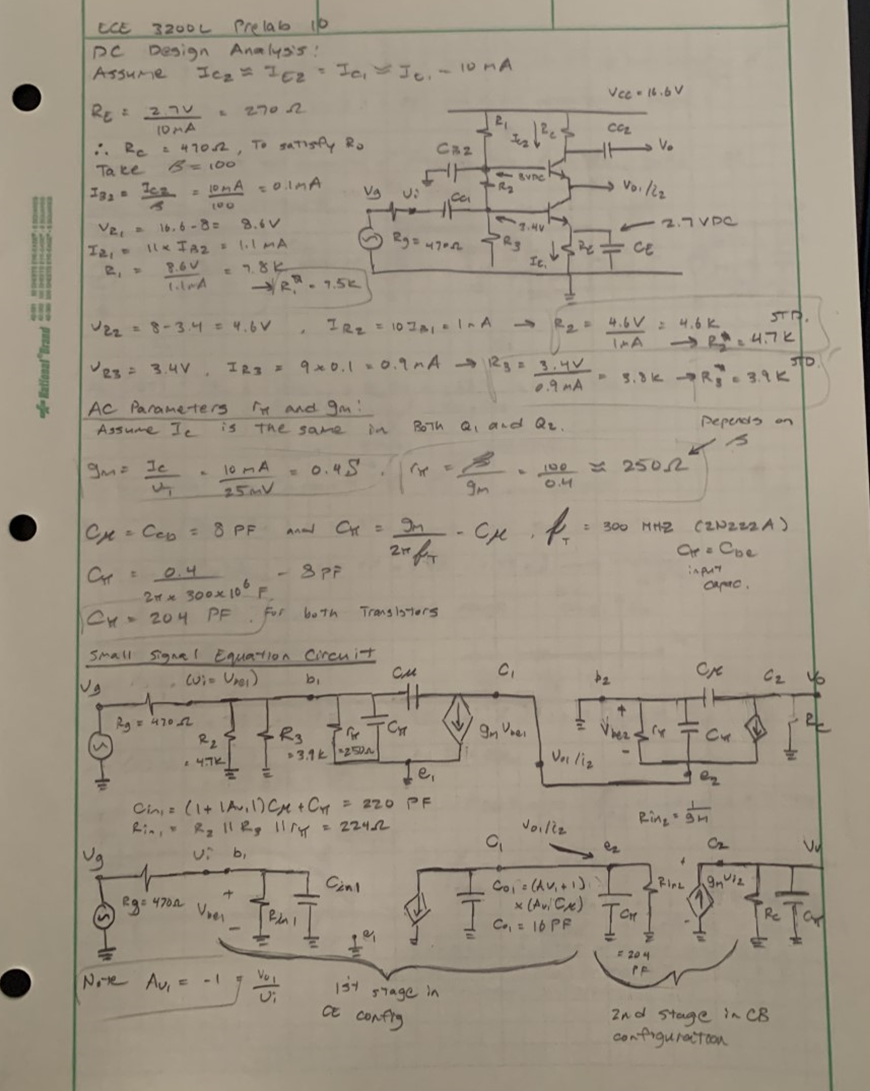 ECE 3200L Prelab 10
DC Design Analysis:
Assume Ic2 ≈ IE2 = Ic1 ≈ IE1 - 10 mA
RE = 2.7V / 10mA = 270 Ω
∴ Rc = 470Ω, To satisfy Ro
Take β = 100
IB2 = Ic2 / β = 10mA / 100 = 0.1mA
VR1 = 16.6 - 8 = 8.6V
IR1 = 11 x IB2 = 1.1 mA
R1 = 8.6V / 1.1mA = 7.8K
→ R1* = 7.5K
Vcc = 16.6V
R1
Ic2 ↓ Rc
CC2
Vo
CB2
8VDC
R2
Vo1/i2
Vg
Vi
CC1
3.4V
2.7VDC
Rg = 470Ω
R3
Ic1 ↓
RE
CE
VR2 = 8 - 3.4 = 4.6V , IR2 = 10 IB1 = 1mA → R2 = 4.6V / 1mA = 4.6K STD.
→ R2* = 4.7K
VR3 = 3.4V , IR3 = 9 x 0.1 = 0.9mA → R3 = 3.4V / 0.9mA = 3.8K → R3* = 3.9K STD.
AC Parameters rπ and gm:
Assume Ic is the same in Both Q1 and Q2.
Depends on β
gm = Ic / VT = 10 mA / 25mV = 0.4S . rπ = β / gm = 100 / 0.4 ≈ 250Ω
Cμ = Ccb = 8 PF and Cπ = gm / 2π fT - Cμ . fT = 300 MHz (2N222A)
Cπ = Cbe
input
capac.
Cπ = 0.4 / 2π x 300x10^6 F - 8 PF
Cπ = 204 PF . For both Transistors
Small Signal Equation Circuit
Vg
(Vi = Vbe1)
b1
Cμ
C1
b2
Cμ
C2
Vo
Rg = 470Ω
R2
= 4.7K
R3
= 3.9K
rπ
= 250Ω
Cπ
gm Vbe1
e1
Vo1/i2
+
Vbe2
-
rπ
Cπ
e2
Rc
Cin1 = (1 + |Av1|) Cμ + Cπ = 220 PF
Rin1 = R2 || R3 || rπ = 224Ω
Rin2 = 1 / gm
Vo1/i2
Vg
Vi
b1
C1
e2
C2
Rg = 470Ω
+
Vbe1
-
Rin1
Cin1
e1
Co1 = (Av1 + 1)
x (Av1 Cμ)
Co1 = 16 PF
Cπ
= 204
PF
Rin2
+
gm Vi2
-
Rc
Note Av1 = -1 = Vo1 / Vi
1st stage in
CE config
2nd stage in CB
configuration
National Brand